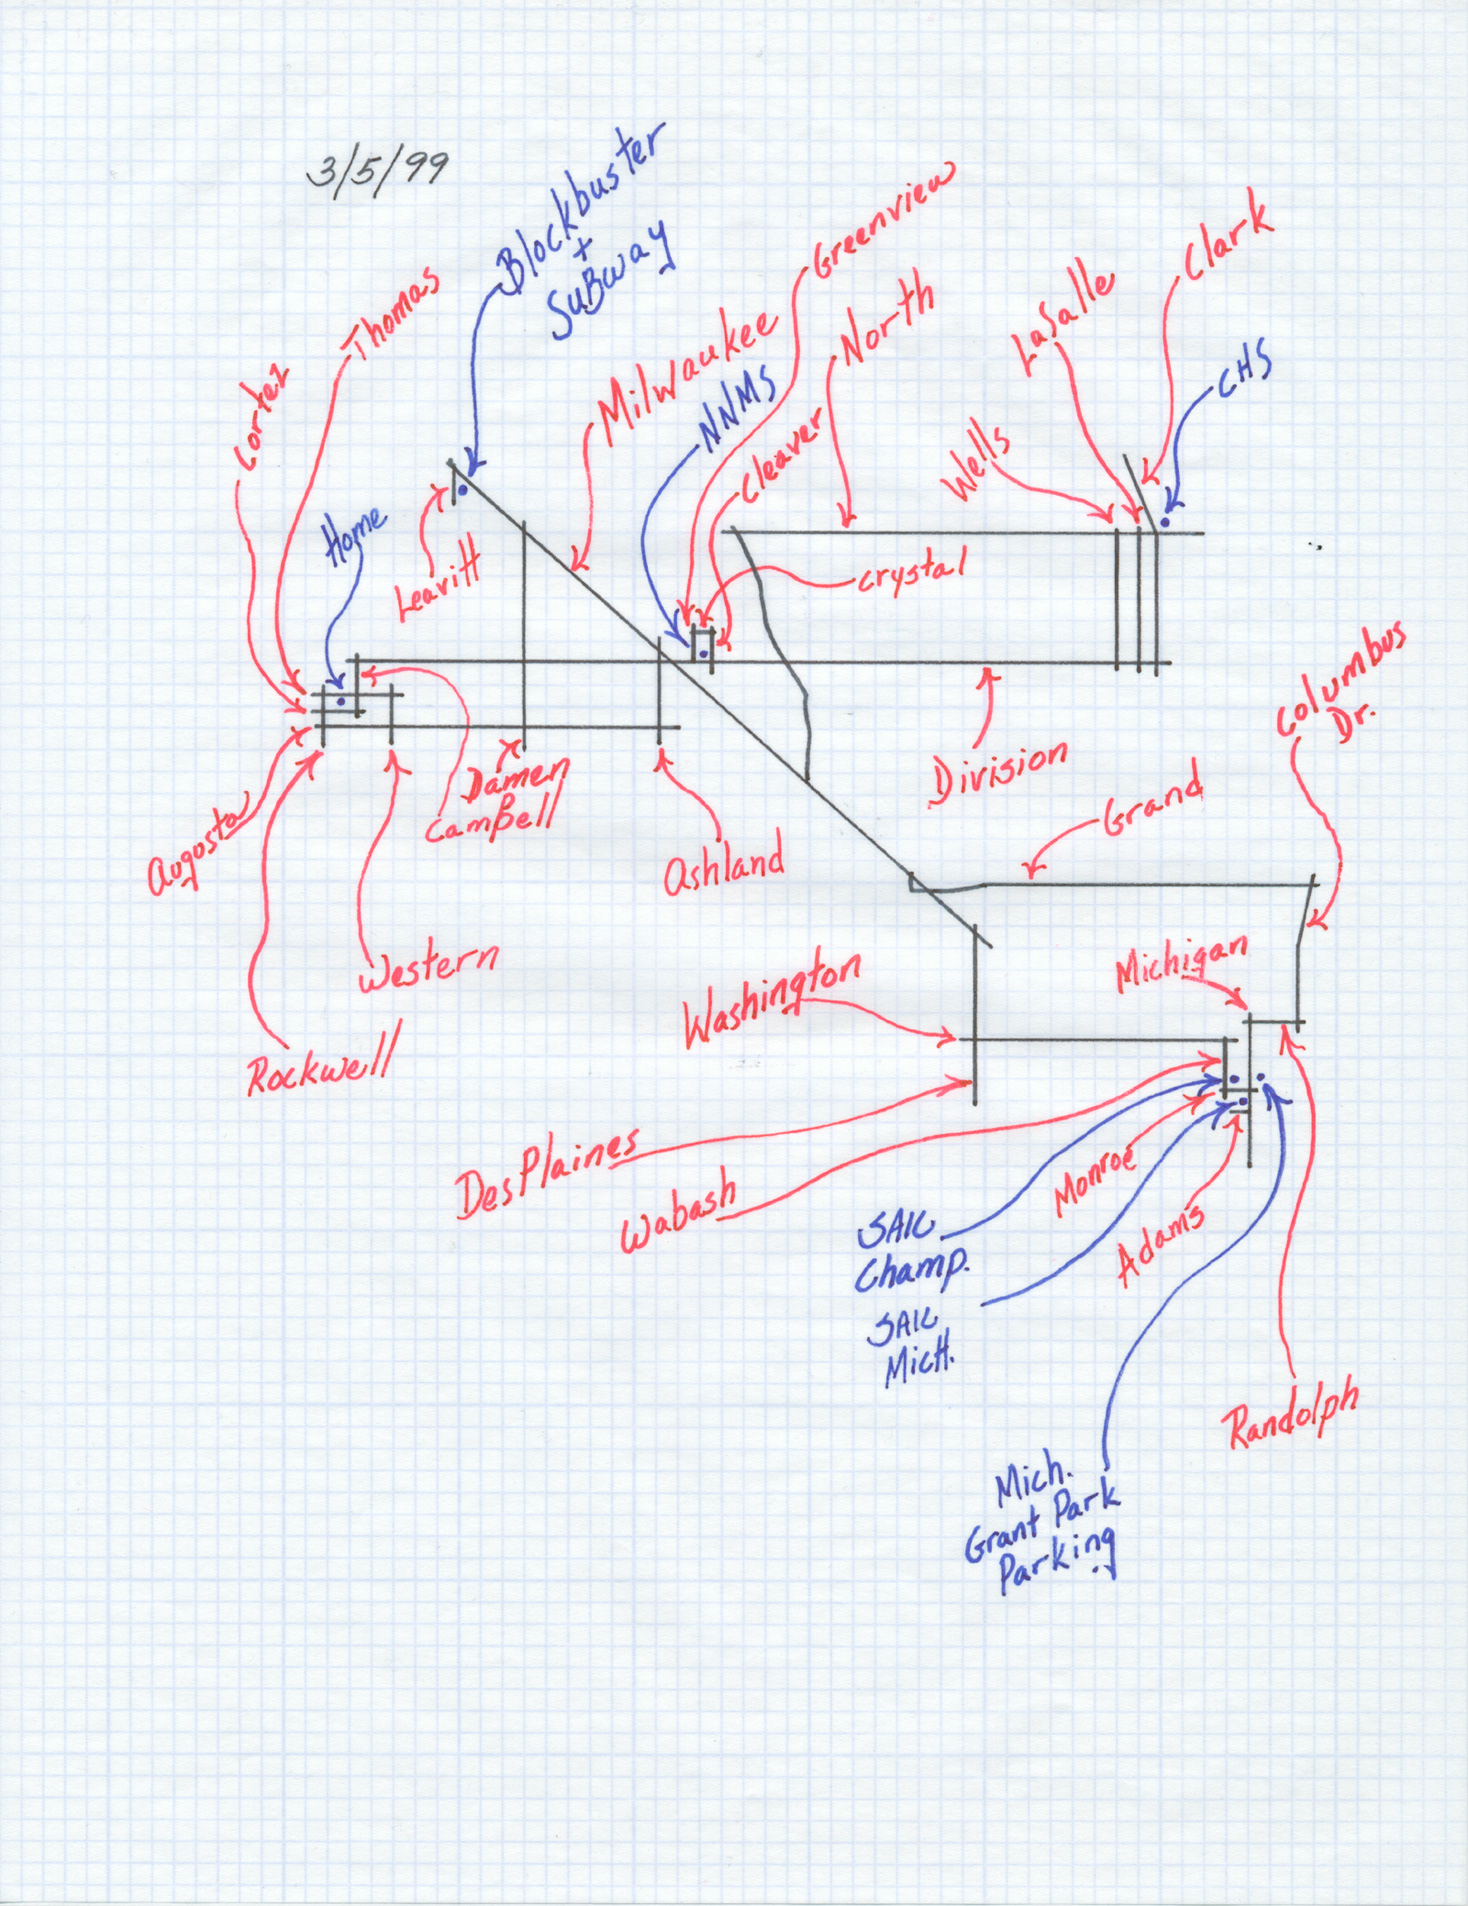 3/5/99
Blockbuster
+
SuBway
Greenview
Clark
Thomas
North
LaSalle
Milwaukee
CHS
Cortez
NNMS
Cleaver
Wells
Home
Leavitt
crystal
Columbus
Dr.
Division
Damen
CampBell
Grand
Augosta
Ashland
Western
Washington
Michigan
Rockwell
DesPlaines
Wabash
Monroe
SAIC
Champ.
Adams
SAIC
MicH.
Randolph
Mich.
Grant Park
Parking